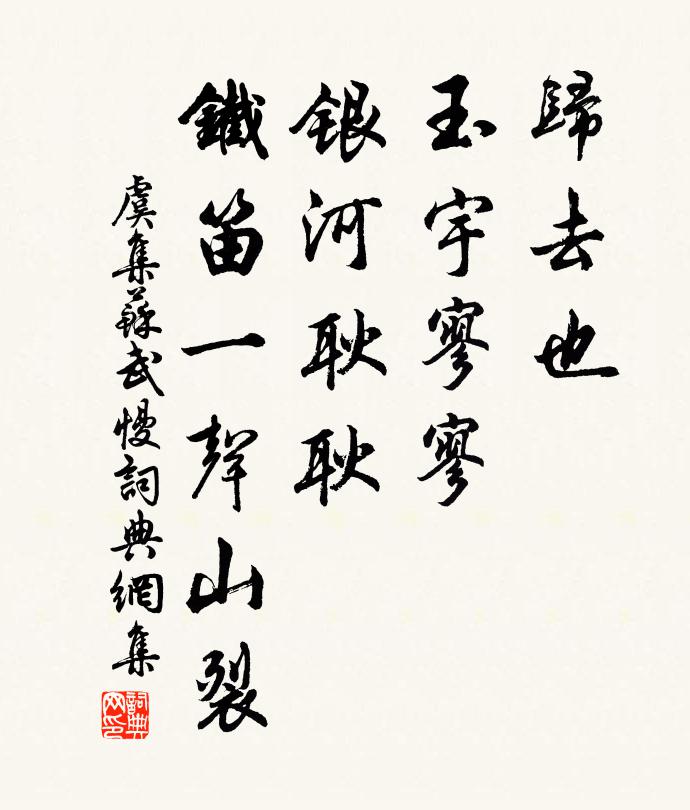 歸去也
玉宇寥寥
銀河耿耿
鐵笛一聲山裂
虞集蘇武慢詞典網集
詞典网印